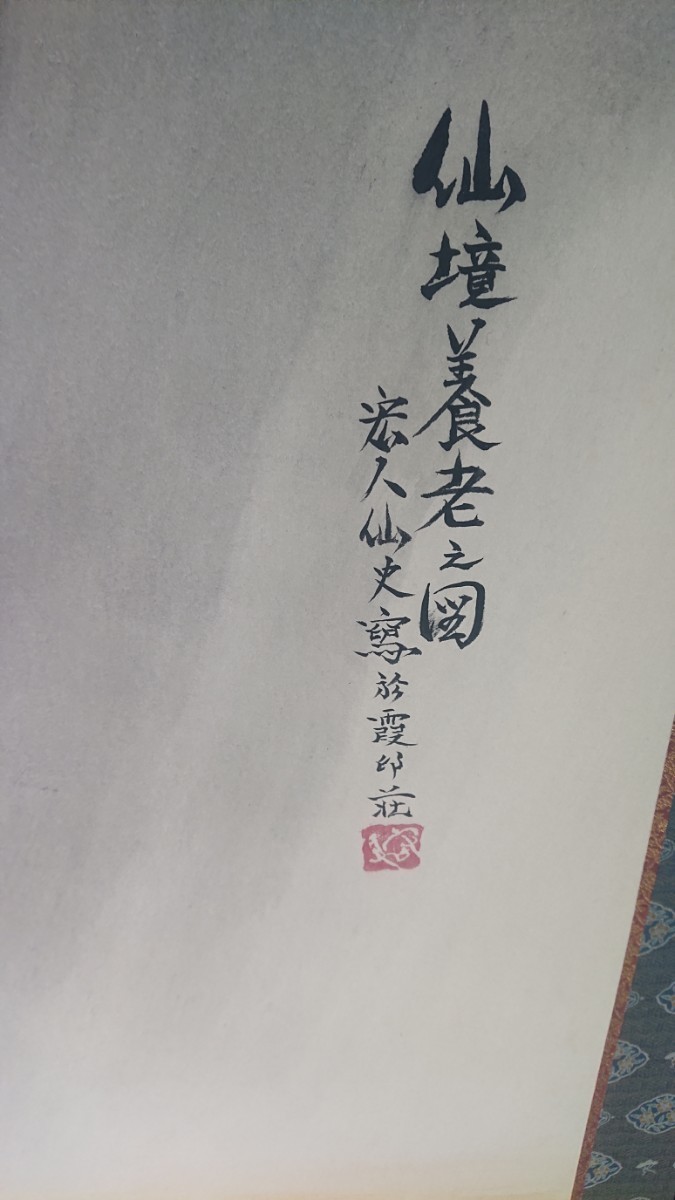 仙境養老之図
宏人仙史寫於霞邱荘